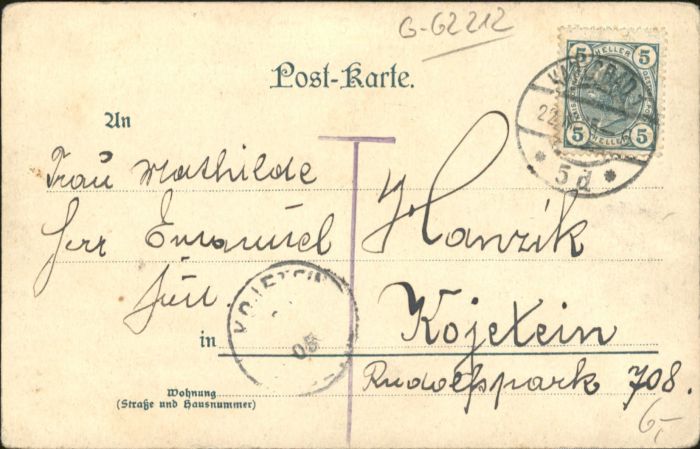 G-G2212
Post-Karte.
5 HELLER 5
5 HELLER 5
22.
* 5 d *
An
Frau Mathilde
Herr Emanuel Hanzik
KOJETEIN
05
in Kojetein
Rudolfspark 708.
Wohnung
(Straße und Hausnummer)
6,-